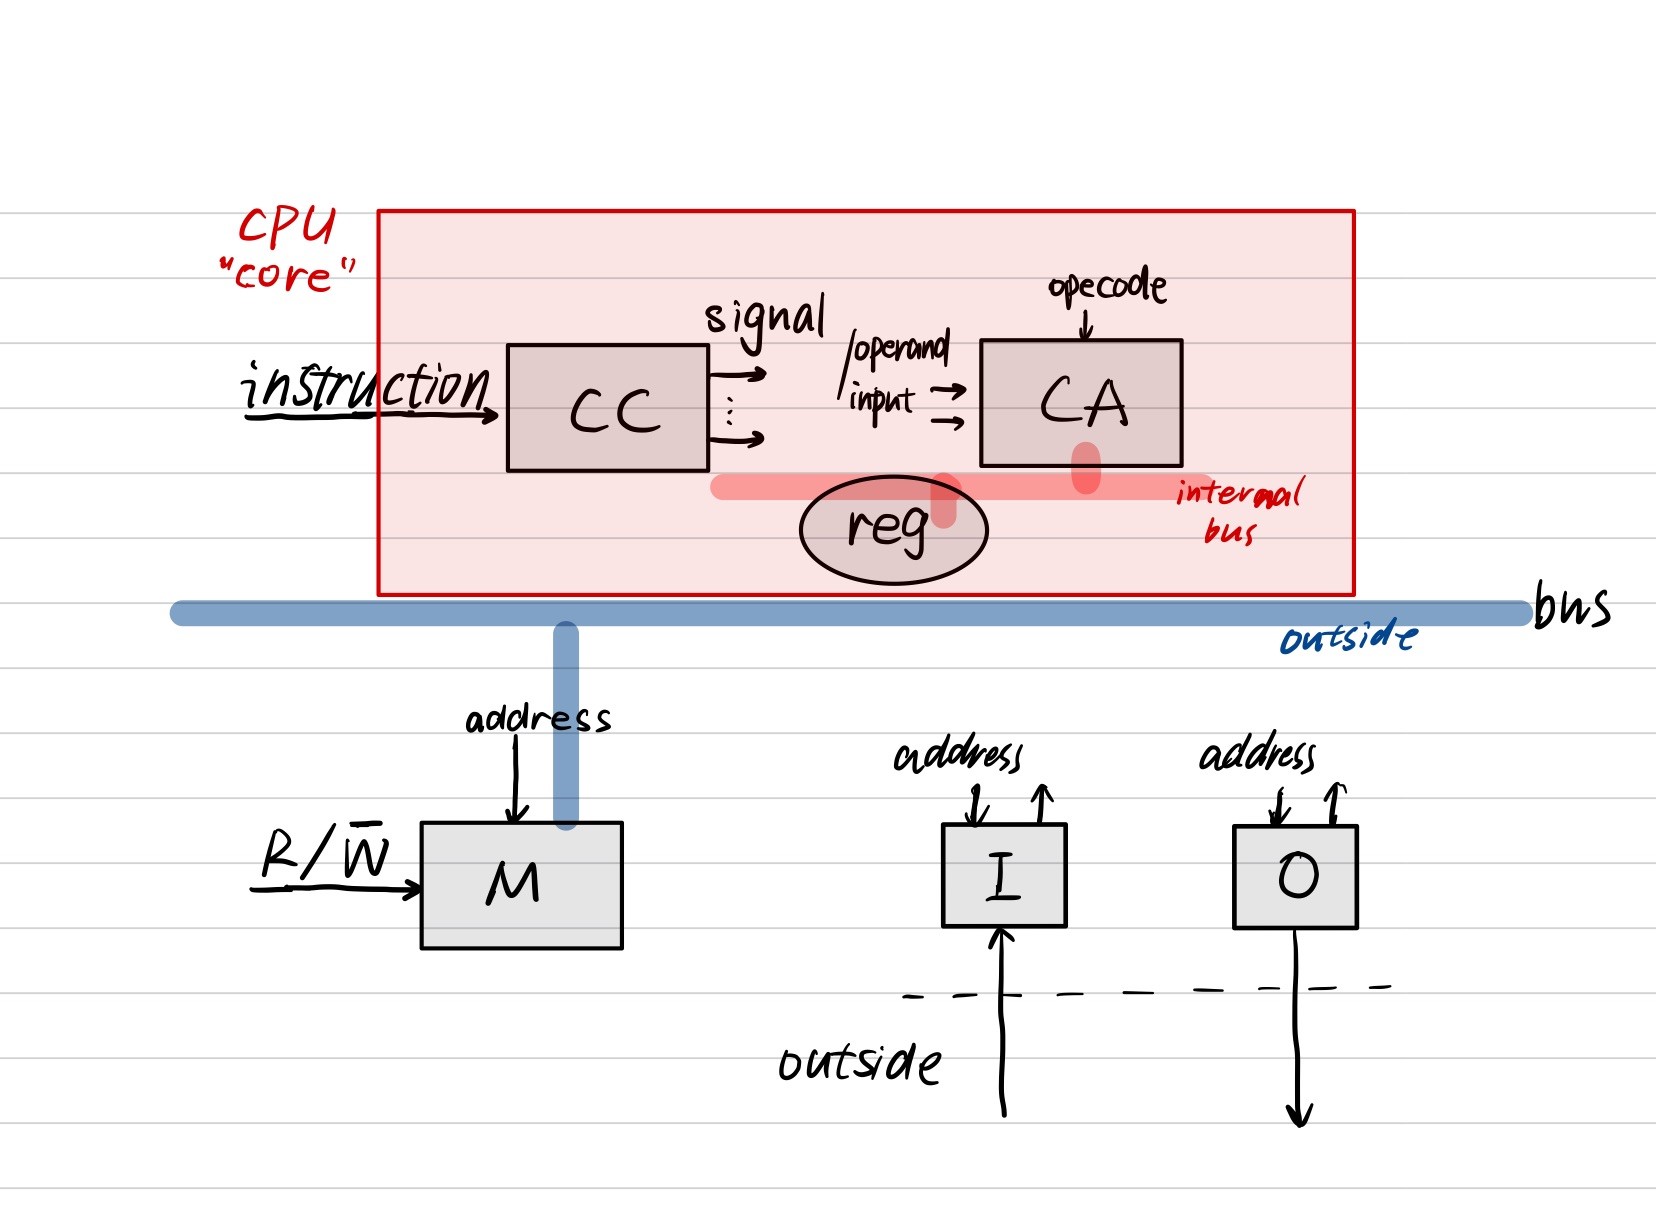 CPU
"core"
instruction
CC
signal
/operand
input
opecode
CA
internal
bus
reg
bus
outside
address
R/W̅
M
address
I
address
O
outside